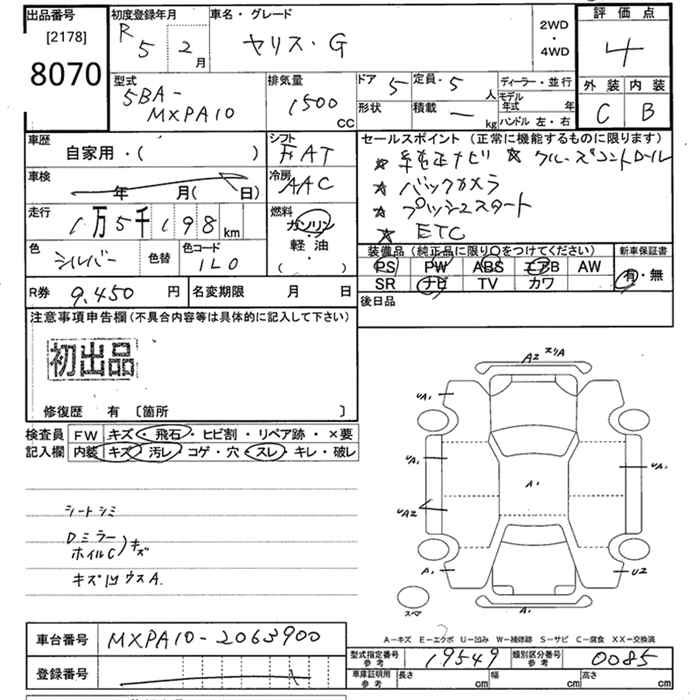 出品番号
[2178]
8070
初度登録年月
R 5 年 2 月
車名・グレード
ヤリス・G
2WD
・
4WD
評価点
4
外装 内装
C B
型式
5BA-
MXPA10
排気量
1500 CC
ドア 5
形状
定員・5 人
積載 — kg
ディーラー・並行
モデル年式 年
ハンドル 左・右
車歴
自家用・( )
シフト
FAT
車検
年 月( 日)
冷房
AAC
走行
1万5千198km
燃料
ガソリン
・
軽油
( ・ )
色
シルバー
色替
色コード
1L0
セールスポイント (正常に機能するものに限ります)
★ 純正ナビ ★ クルーズコントロール
★ バックカメラ
★ プッシュスタート
★ ETC
装備品(純正品に限り○をつけてください)
PS PW ABS エアB AW
SR ナビ TV カワ
新車保証書
有・無
R券 9,450 円
名変期限 月 日
後日品
注意事項申告欄(不具合内容等は具体的に記入して下さい)
初出品
修復歴 有 〔箇所 〕
検査員
記入欄
FW キズ・飛石・ヒビ割・リペア跡・×要
内装 キズ・汚レ・コゲ・穴・スレ・キレ・破レ
シートシミ
Dミラー
ホイルC)キズ
A2
UA1
UA1
UA2
A1
UA1
A1
U2
スマ
A1
A−キズ E−エクボ U−凹み W−補修跡 S−サビ C−腐食 XX−交換済
車台番号 MXPA10-2063900
登録番号
型式指定番号
参考
19549
類別区分番号
参考
0085
車庫証明用
参考
長さ cm 幅 cm 高さ cm